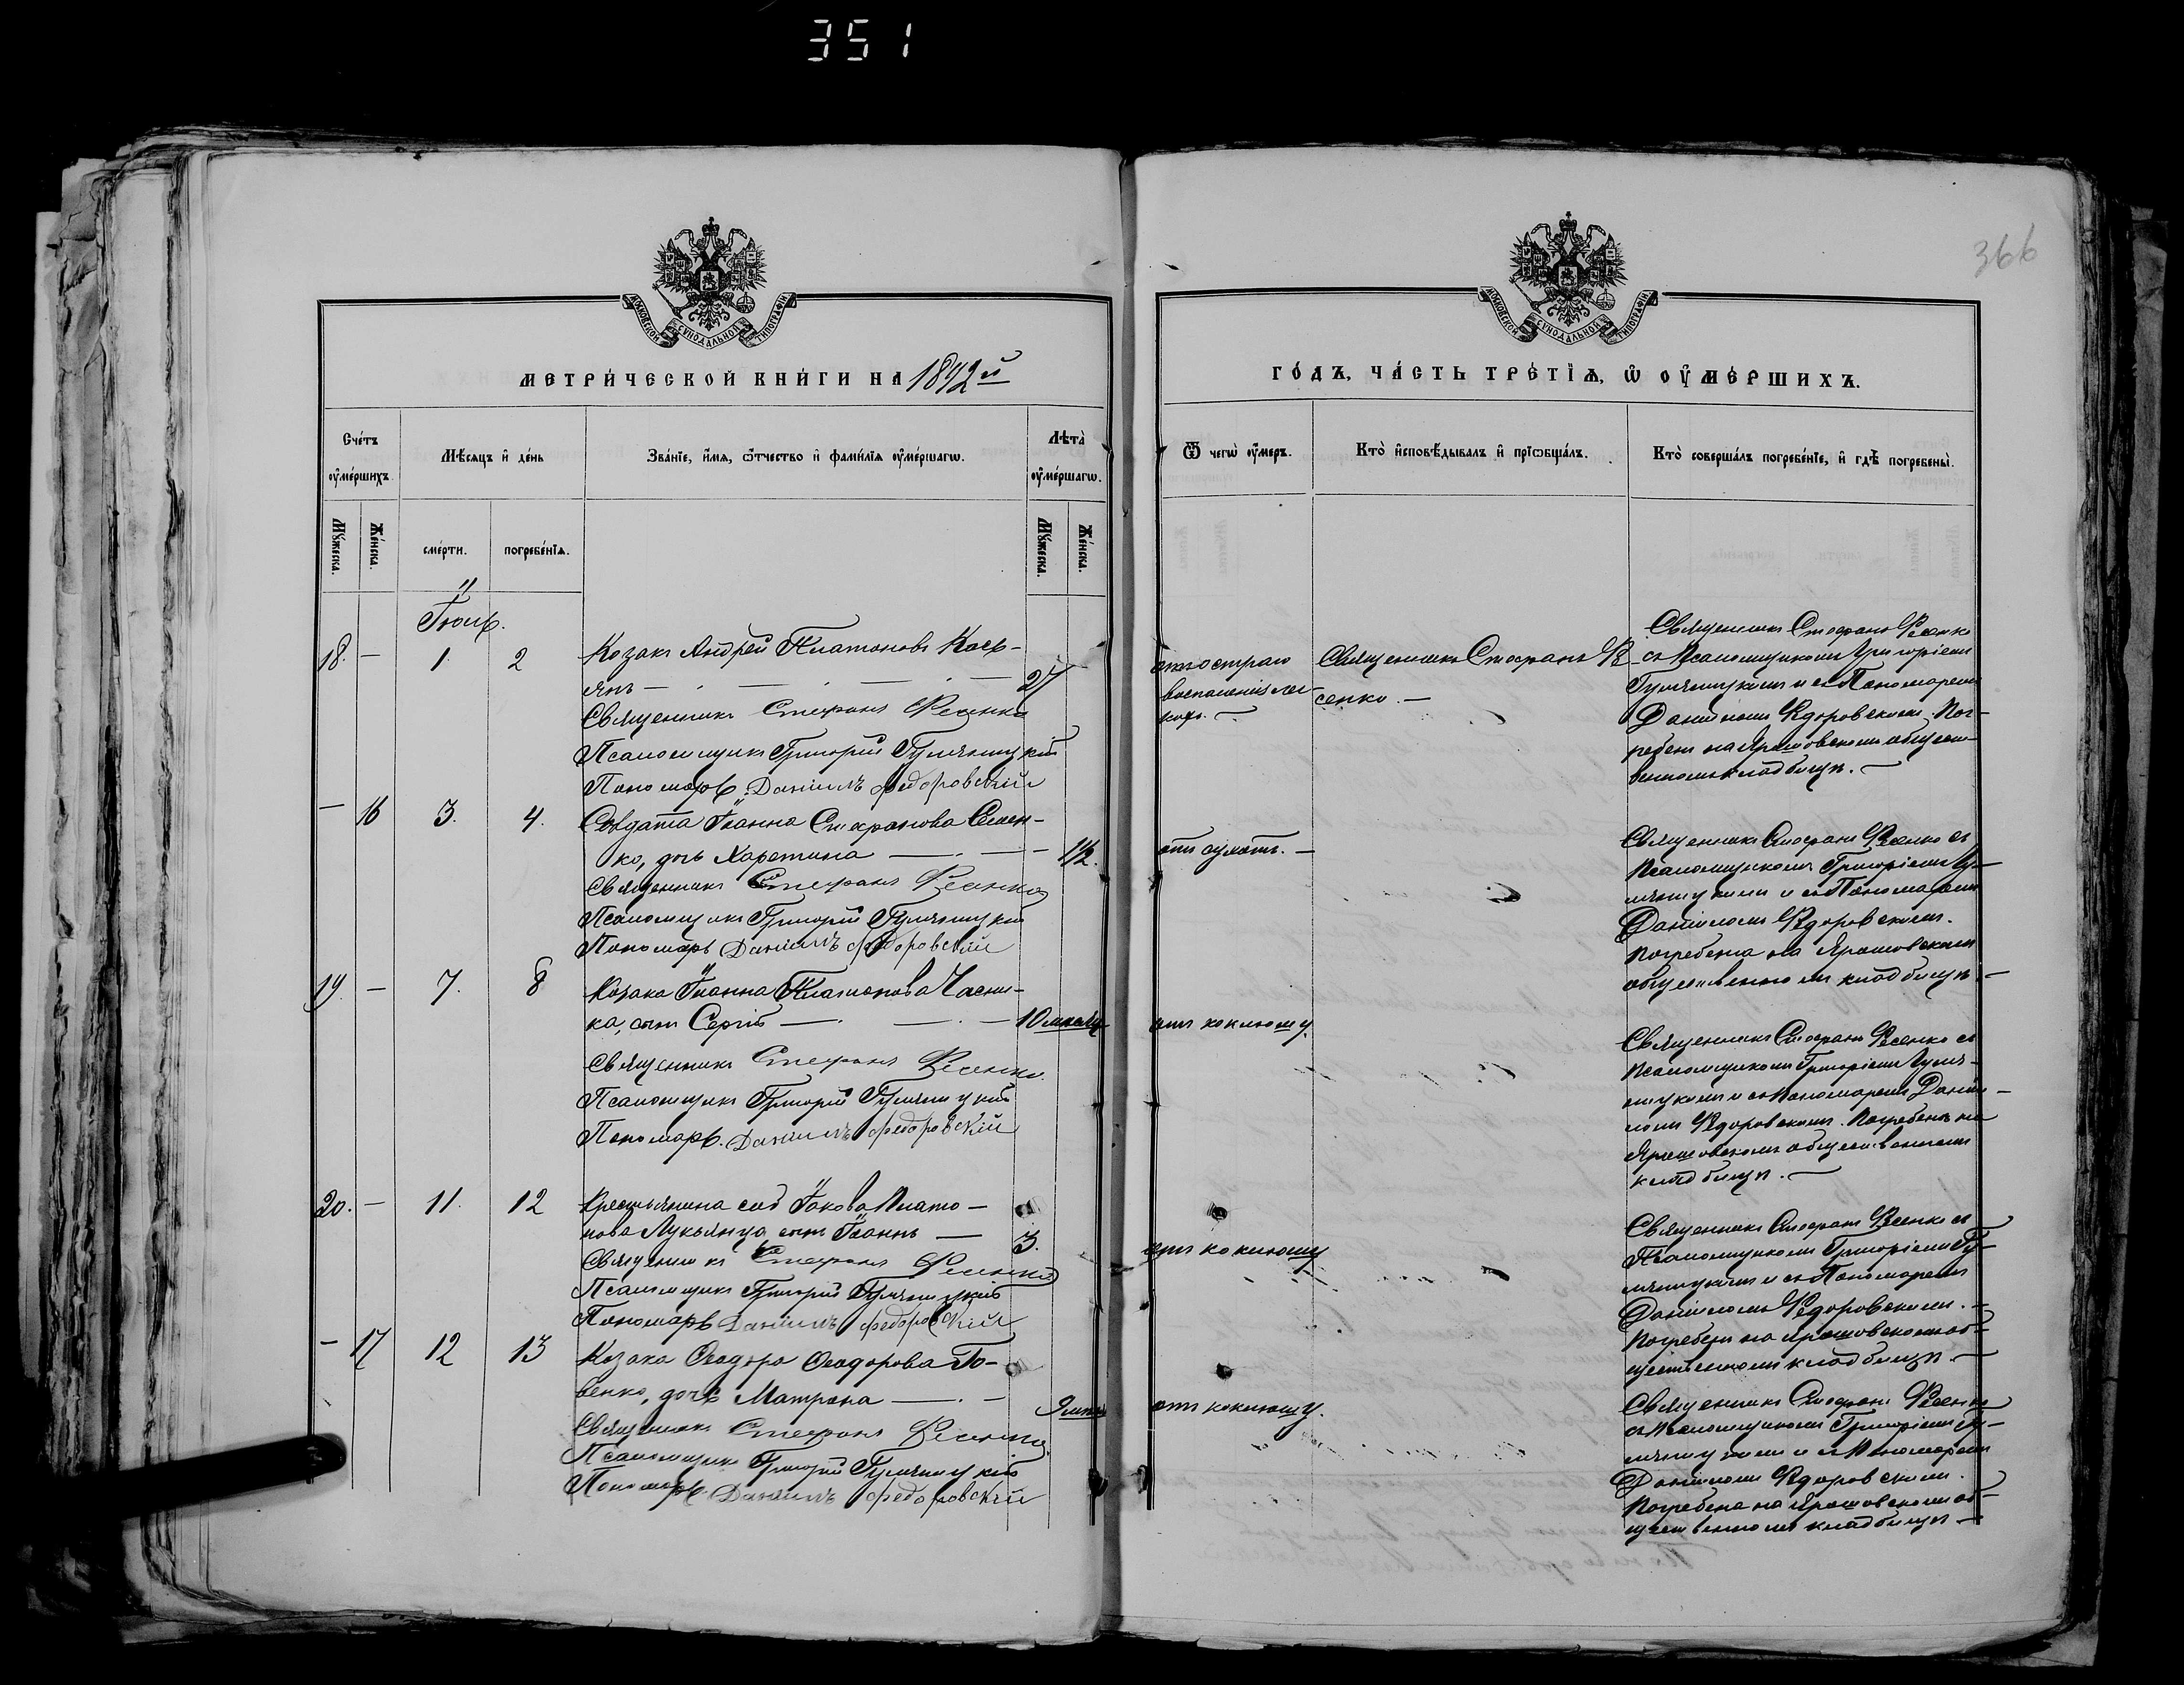 351
366
МОСКОВСКОЙ СѴНОДАЛЬНОЙ ТИПОГРАФІИ
МОСКОВСКОЙ СѴНОДАЛЬНОЙ ТИПОГРАФІИ
МЕТРИ́ЧЕСКОЙ КНИ́ГИ НА 1892й
ГО́ДЪ, ЧА́СТЬ ТРЕ́ТІѦ, Ѡ҆ ОУ҆МЕ́РШИХЪ.
Сче́тъ оу҆ме́ршихъ.
Мѣ́сяцъ и҆ де́нь
Зва́нїе, и҆́мѧ, ѻ҆́тчество и҆ фами́лїѧ оу҆ме́ршагѡ.
Лѣта̀ оу҆ме́ршагѡ.
Ѿ чегѡ̀ оу҆́меръ.
Кто̀ и҆сповѣ́дывалъ и҆ прїѡбща́лъ.
Кто̀ соверша́лъ погребе́нїе, и҆ гдѣ̀ погребены̀.
Мꙋ́жеска.
Же́нска.
сме́рти.
погребе́нїѧ.
Мꙋ́жеска.
Же́нска.
Іюль.
18. — 1. 2
Козакъ Андрей Платоновъ Кось-
янъ — 27
Священникъ Стефанъ Фесенко
Псаломщикъ Григорій Гумницкій
Пономарь Даніилъ Федоровскій
отъ остраго
воспаленія лег-
кихъ. —
Священникъ Стефанъ Фе-
сенко. —
Священникъ Стефанъ Фесенко
съ Псаломщикомъ Григоріемъ
и съ Пономаремъ
Даніиломъ Федоровскимъ. Пог-
ребенъ на Ярошовскомъ общест-
венномъ кладбищѣ. —
— 16 3. 4.
Солдата Іоанна Стефанова Семен-
ко, дочь Харитина — 1½.
Священникъ Стефанъ Фесенко
Псаломщикъ Григорій Гумницкій
Пономарь Даніилъ Федоровскій
отъ сухотъ. —
Священникъ Стефанъ Фесенко съ
Псаломщикомъ Григоріемъ Гу-
мницкимъ и съ Пономаремъ
Даніиломъ Федоровскимъ.
Погребена на Ярошовскомъ
общественномъ кладбищѣ. —
19. — 7. 8
Козака Іоанна Платонова Часни-
ка, сынъ Сергій — 10 мѣсяц
Священникъ Стефанъ Фесенко.
Псаломщикъ Григорій Гумницкій
Пономарь. Даніилъ Федоровскій
отъ коклюшу.
Священникъ Стефанъ Фесенко съ
Псаломщикомъ Григоріемъ Гумн-
ицкимъ и съ Пономаремъ Даніи-
ломъ Федоровскимъ. Погребенъ на
Ярошовскомъ общественномъ
кладбищѣ. —
20. — 11. 12
Крестьянина соб Іакова Плато-
нова Лукьянца, сынъ Іоаннъ — 3.
Священникъ Стефанъ Фесенко
Псаломщикъ Григорій Гумницкій
Пономарь Даніилъ Федоровскій
отъ коклюшу
Священникъ Стефанъ Фесенко съ
Псаломщикомъ Григоріемъ Гу-
мницкимъ и съ Пономаремъ
Даніиломъ Федоровскимъ. —
Погребенъ на Ярошовскомъ об-
щественномъ кладбищѣ. —
— 17 12 13
Козака Ѳеодора Ѳеодорова Го-
венко, дочь Матрона —
Священникъ Стефанъ Фесенко
Псаломщикъ Григорій Гумницкій
Пономарь. Даніилъ Федоровскій
отъ коклюшу.
Священникъ Стефанъ Фесенко
съ Псаломщикомъ Григоріемъ Гу-
мницкимъ и съ Пономаремъ
Даніиломъ Федоровскимъ.
Погребена на Ярошовскомъ об-
щественномъ кладбищѣ —